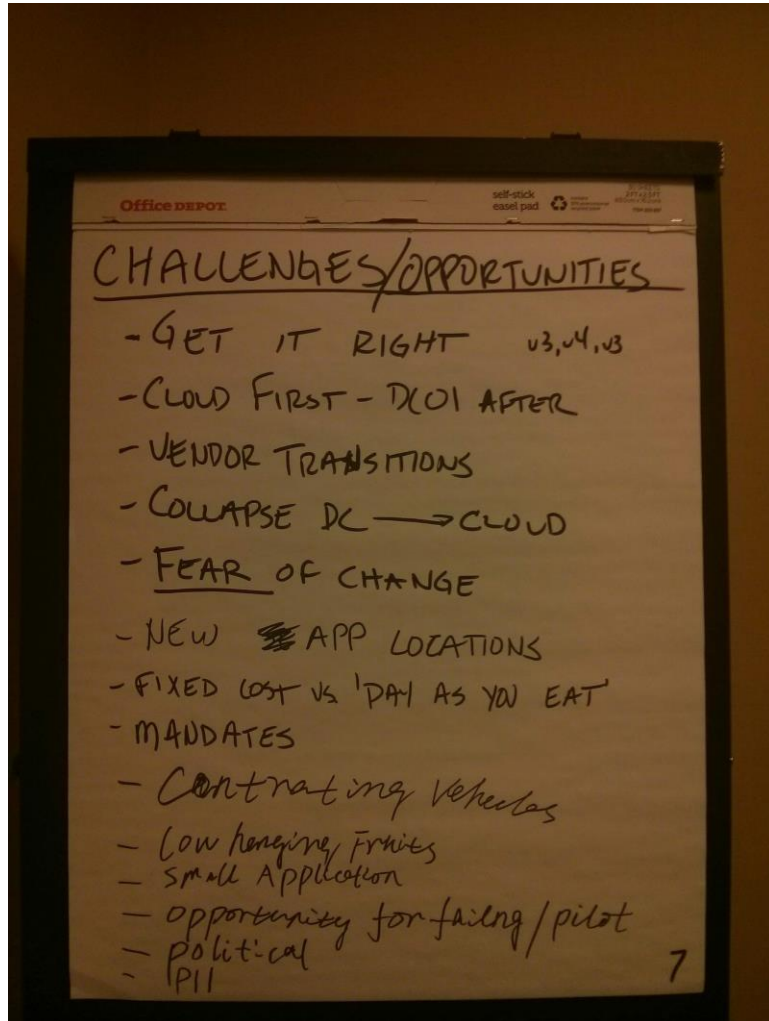 Office DEPOT.
self-stick
easel pad
CHALLENGES/OPPORTUNITIES
- GET IT RIGHT v3, v4, v3
- CLOUD FIRST - DCOI AFTER
- VENDOR TRANSITIONS
- COLLAPSE DC → CLOUD
- FEAR OF CHANGE
- NEW APP LOCATIONS
- FIXED COST VS 'PAY AS YOU EAT'
- MANDATES
- Contrating Vehecles
- Low henging Fruits
- Small Application
- opportunity for failng/pilot
- political
- PII
7